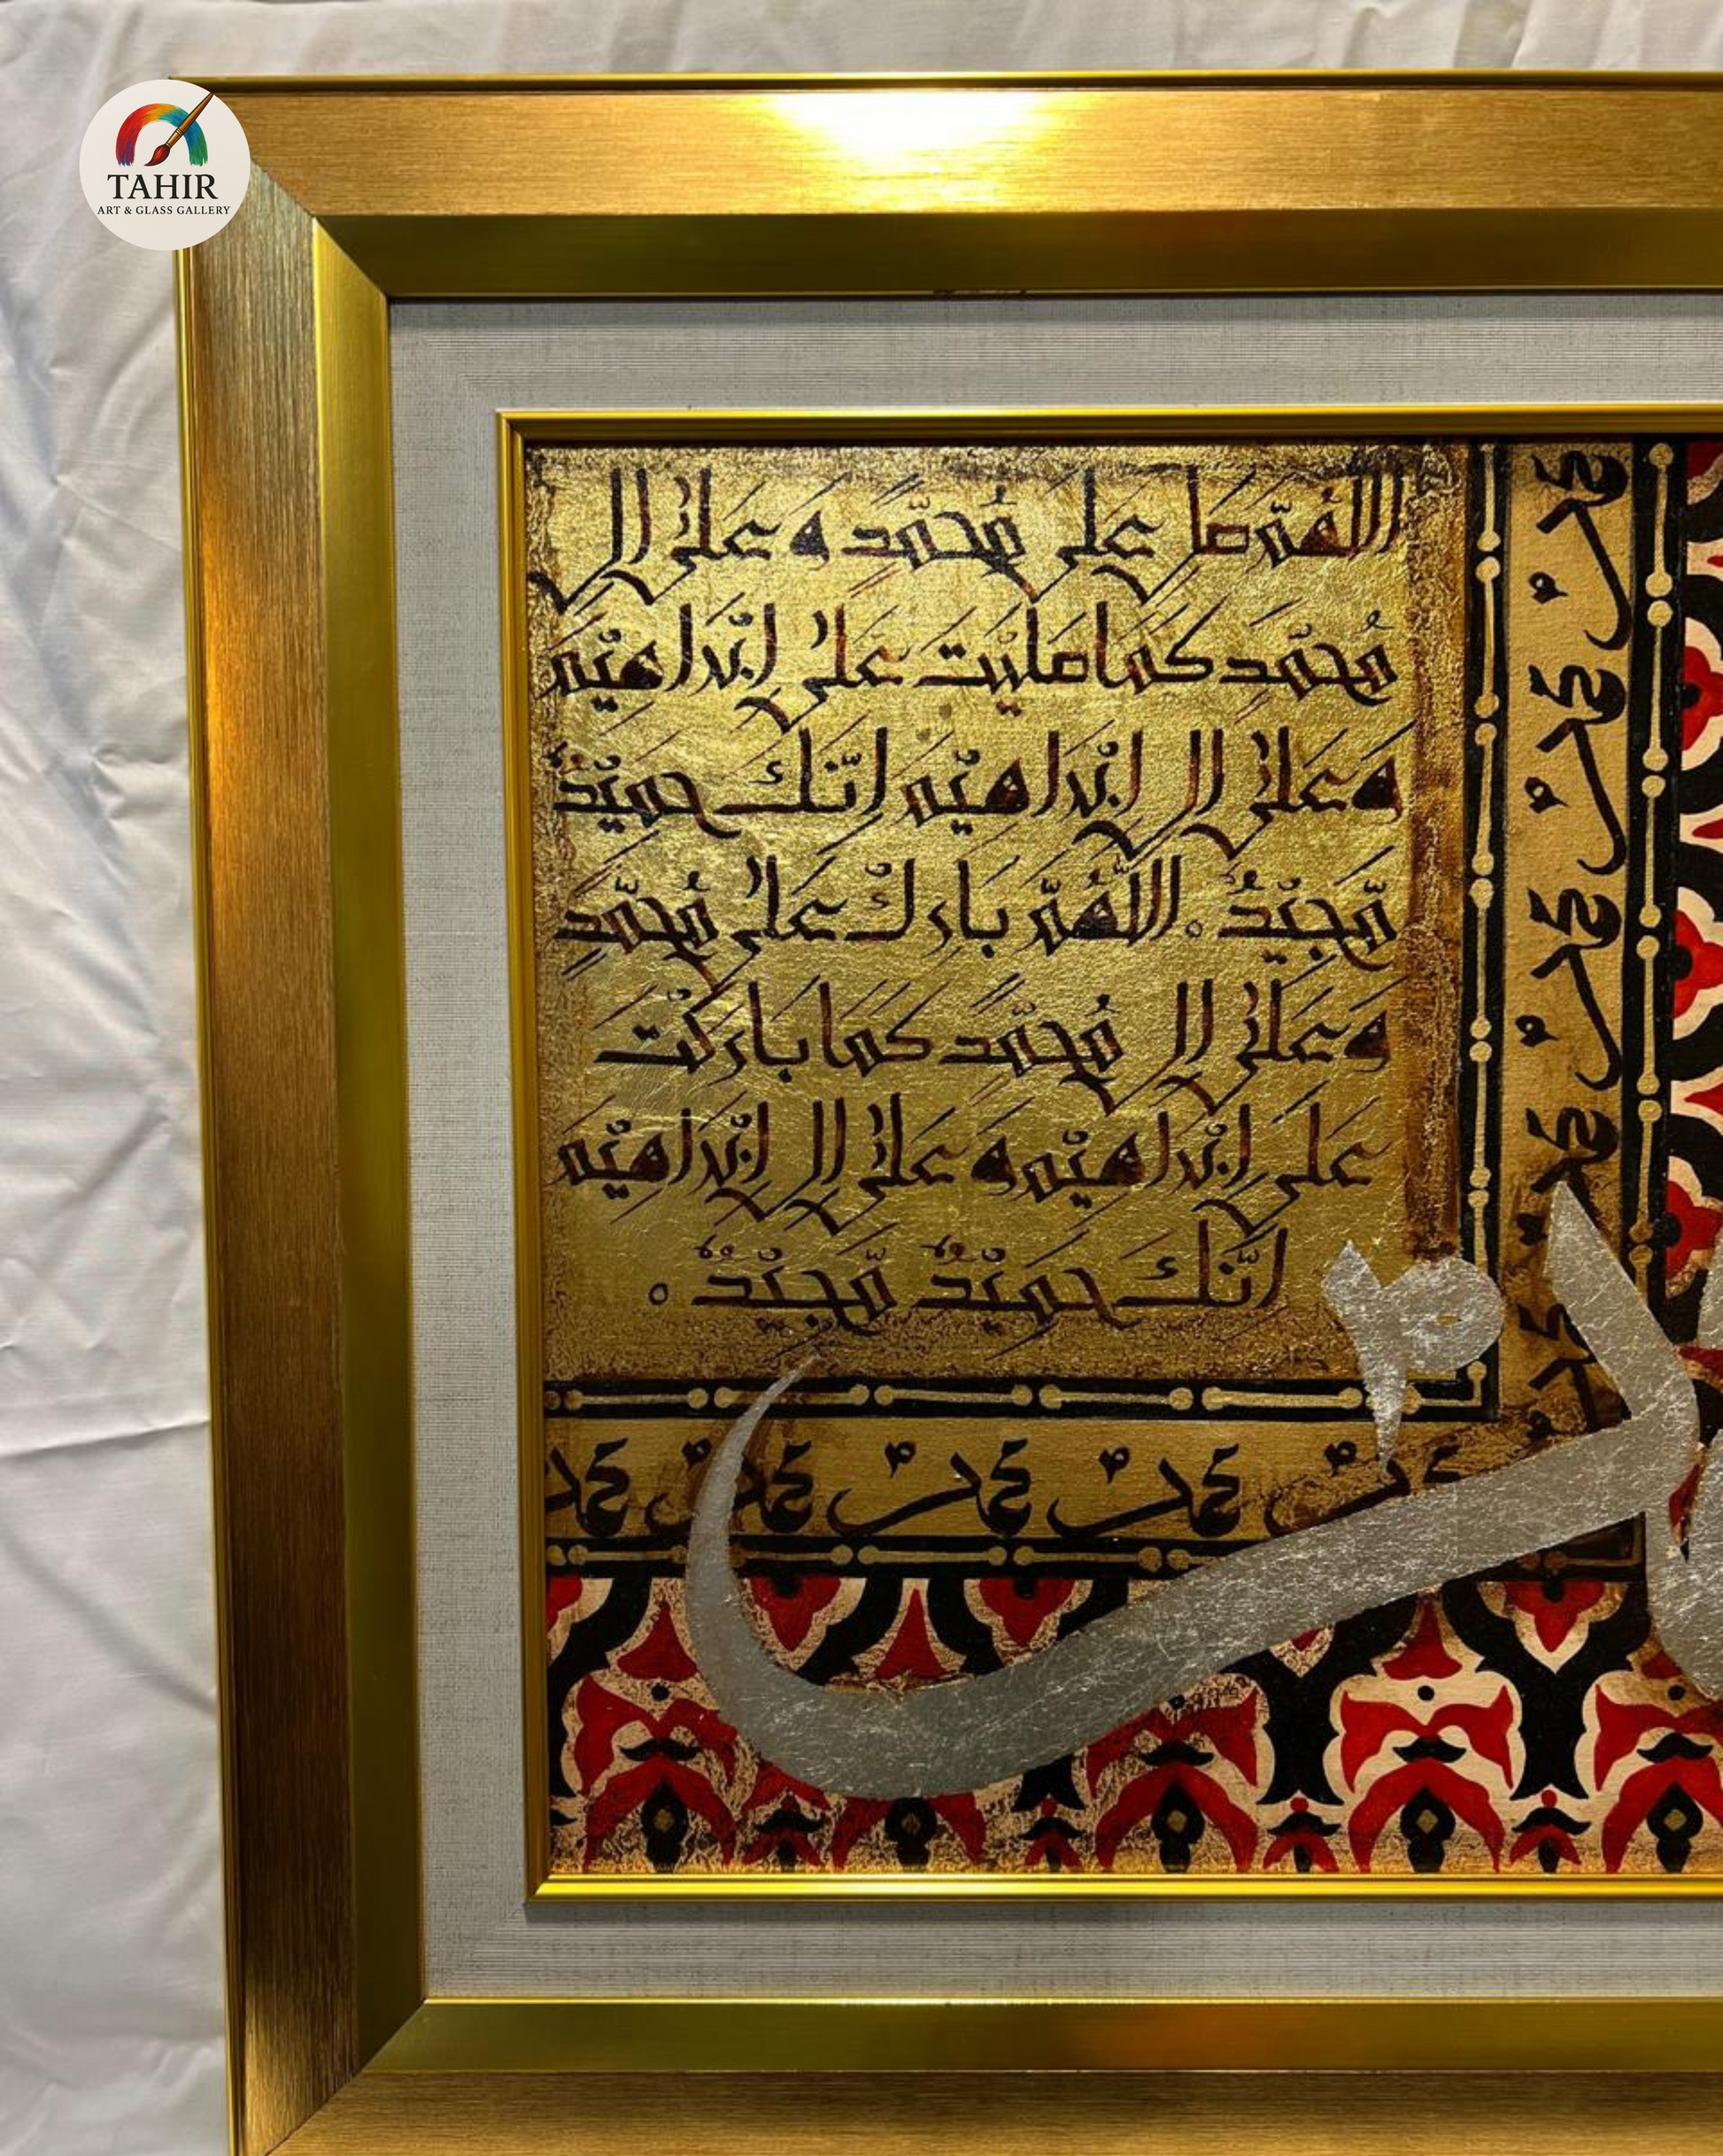 TAHIR
ART & GLASS GALLERY
اللّٰهُمَّ صل على مُحمَّد و علىٰ اٰل
مُحمَّدٍ كما صليْت علىٰ اِبْراهيْم
وَعَلىٰ اٰل اِبْراهيْم اِنّك حميْدٌ
مّجيْدٌ ۰ اللّٰهُمَّ بارِكْ علىٰ مُحمَّدٍ
وَعلىٰ اٰل مُحمَّد كمَا بَاركْت
على اِبْراهيْم و علىٰ اٰل اِبْراهيْم
اِنَّك حميْدٌ مّجيْدٌ ۰
محمد
محمد
محمد
محمد
محمد محمد محمد محمد